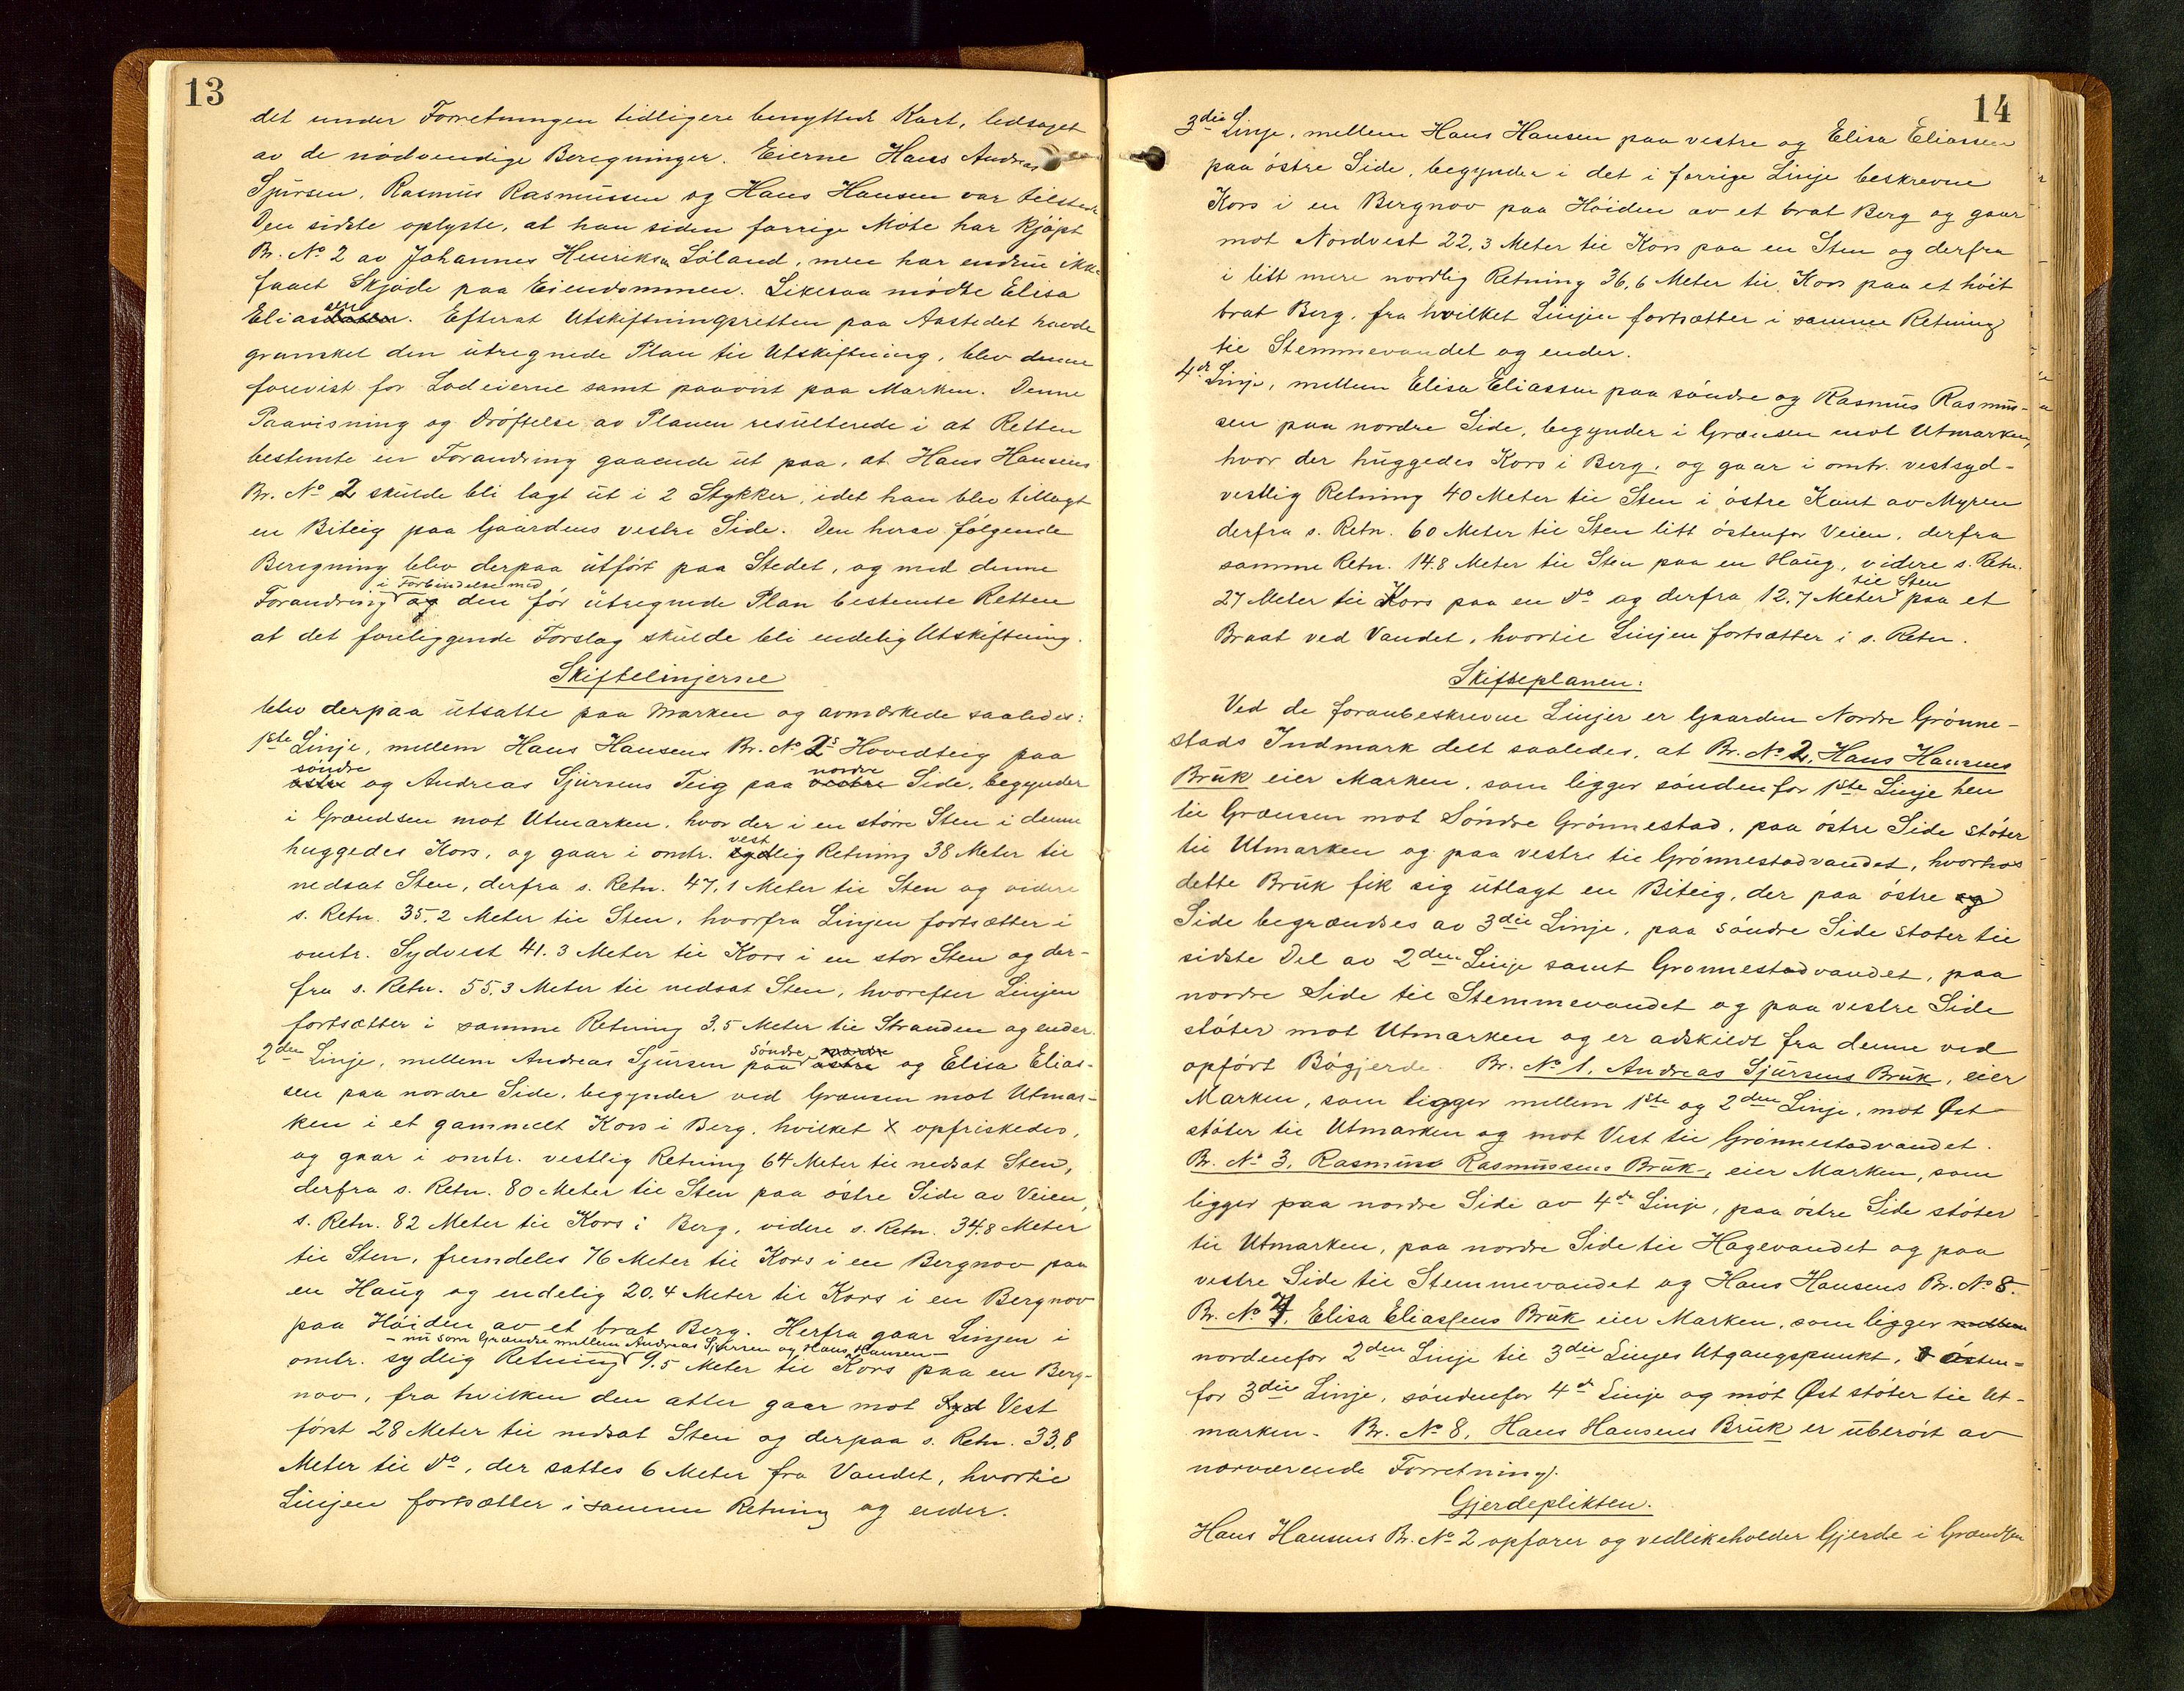 13
det under Forretningen tidligere benyttede Kart, ledsaget
av de nödvendige Beregninger. Eierne Hans Andreas
Sjursen, Rasmus Rasmussen og Hans Hansen var tilstede
Den sidste oplyste, at han siden forrige Möte har kjöpt
Br. No 2 av Johannes Henriksen Löland, men har endnu ikke
faaet Skjöde paa Eiendommen. Likesaa mödte Elisa
Eliassen. Efterat Utskiftningsretten paa Aastedet havde
gransket den utregnede Plan til Utskiftning, blev denne
forevist for Lodeierne samt paavist paa Marken. Denne
Paavisning og Dröftelse av Planen resulterede i at Retten
bestemte en Forandring gaaende ut paa, at Hans Hansens
Br. No 2 skulde bli lagt ut i 2 Stykker, idet han blev tillagt
en Biteig paa Gaardens vestre Side. Den herav fölgende
Beregning blev derpaa utfört paa Stedet, og med denne
i Forbindelse med
Forandring og den för utregnede Plan bestemte Retten
at det foreliggende Forslag skulde bli endelig Utskiftning.
Skiftelinjerne
blev derpaa utsatte paa Marken og avmærkede saaledes:
1ste Linje, mellem Hans Hansens Br. No 2s Hovedteig paa
söndre nordre
östre og Andreas Sjursens Teig paa vestre Side, begynder
i Grændsen mot Utmarken, hvor der i en större Sten i denne
vest
huggedes Kors, og gaar i omtr. sydlig Retning 38 Meter til
nedsat Sten, derfra s. Retn. 47,1 Meter til Sten og videre
s. Retn. 35,2 Meter til Sten, hvorfra Linjen fortsætter i
omtr. Sydvest 41.3 Meter til Kors i en stor Sten og der-
fra s. Retn. 55,3 Meter til nedsat Sten, hvorefter Linjen
fortsætter i samme Retning 3,5 Meter til Stranden og ender.
söndre nordre
2den Linje, mellem Andreas Sjursen paa östre og Elisa Elias-
sen paa nordre Side, begynder ved Grænsen mot Utmar-
ken i et gammelt Kors i Berg, hvilket x opfriskedes,
og gaar i omtr. vestlig Retning 64 Meter til nedsat Sten,
derfra s. Retn. 80 Meter til Sten paa östre Side av Veien,
s. Retn. 82 Meter til Kors i Berg, videre s. Retn. 34,8 Meter
til Sten, fremdeles 76 Meter til Kors i en Bergnov paa
en Haug og endelig 20.4 Meter til Kors i en Bergnov
paa Höiden av et brat Berg. Herfra gaar Linjen i
- nu som Grændse mellem Andreas Sjursen og Hans Hansen -
omtr. sydlig Retning 9.5 Meter til Kors paa en Berg-
nov, fra hvilken den atter gaar mot Syd Vest
först 28 Meter til nedsat Sten og derpaa s. Retn. 33,8
Meter til do, der sattes 6 Meter fra Vandet, hvortil
Linjen fortsætter i samme Retning og ender.
14
3die Linje, mellem Hans Hansen paa vestre og Elisa Eliassen
paa östre Side, begynder i det i forrige Linje beskrevne
Kors i en Bergnov paa Höiden av et brat Berg og gaar
mot Nordvest 22,3 Meter til Kors paa en Sten og derfra
i litt mere nordlig Retning 36,6 Meter til Kors paa et höit
brat Berg, fra hvilket Linjen fortsætter i samme Retning
til Stemmevandet og ender.
4de Linje, mellem Elisa Eliassen paa söndre og Rasmus Rasmus-
sen paa nordre Side, begynder i Grænsen mot Utmarken,
hvor der huggedes Kors i Berg, og gaar i omtr. vestsyd-
vestlig Retning 40 Meter til Sten i östre Kant av Myren
derfra s. Retn. 60 Meter til Sten litt östenfor Veien, derfra
samme Retn. 14.8 Meter til Sten paa en Haug, videre s. Retn.
til Sten
27 Meter til Kors paa en do og derfra 12,7 Meter paa et
Braat ved Vandet, hvortil Linjen fortsætter i s. Retn.
Skifteplanen:
Ved de foranbeskrevne Linjer er Gaarden Nordre Grönne-
stads Indmark delt saaledes, at Br. No 2, Hans Hansens
Bruk eier Marken, som ligger söndenfor 1ste Linje hen
til Grænsen mot Söndre Grönnestad, paa östre Side stöter
til Utmarken og paa vestre til Grönnestadvandet, hvorhos
dette Bruk fik sig utlagt en Biteig, der paa östre og
Side begrændses av 3die Linje, paa söndre Side stöter til
sidste Del av 2den Linje samt Grönnestadvandet, paa
nordre Side til Stemmevandet og paa vestre Side
stöter mot Utmarken og er adskildt fra denne ved
opfört Bögjerde. Br. No 1, Andreas Sjursens Bruk, eier
Marken, som ligger mellem 1ste og 2den Linje, mot Øst
stöter til Utmarken og mot Vest til Grönnestadvandet.
Br. No 3, Rasmus Rasmussens Bruk, eier Marken, som
ligger paa nordre Side av 4de Linje, paa östre Side stöter
til Utmarken, paa nordre Side til Hagevandet og paa
vestre Side til Stemmevandet og Hans Hansens Br. No 8.
Br. No 7, Elisa Eliassens Bruk eier Marken, som ligger mellem
nordenfor 2den Linje til 3die Linjes Utgangspunkt, östen-
for 3die Linje, söndenfor 4de Linje og mot Øst stöter til Ut-
marken. Br. No 8, Hans Hansens Bruk er uberört av
nærværende Forretning.
Gjerdeplikten.
Hans Hansens Br. No 2 opförer og vedlikeholder Gjerde i Grændsen